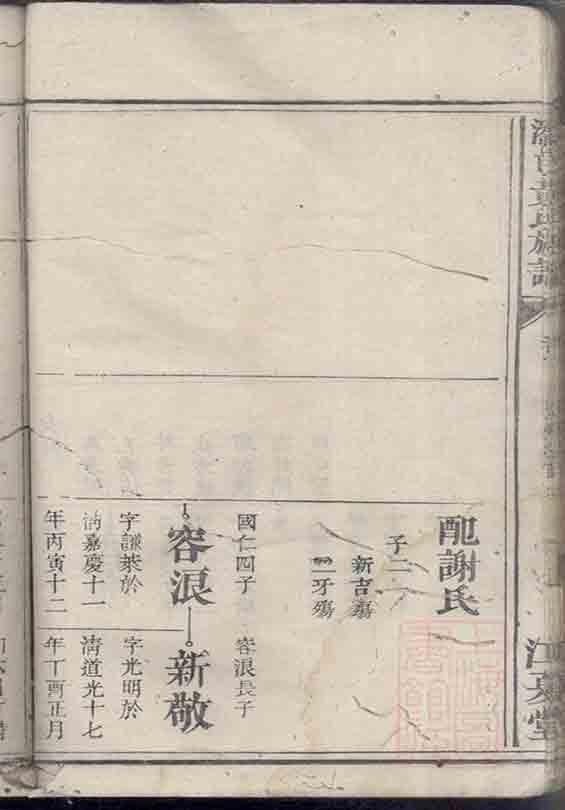 黃氏族譜
江夏堂
配謝氏
子二
新吉殤
二牙殤
國仁四子
容浪
字謙萊於
清嘉慶十一
年丙寅十二
容浪長子
新敬
字光明於
清道光十七
年丁酉正月